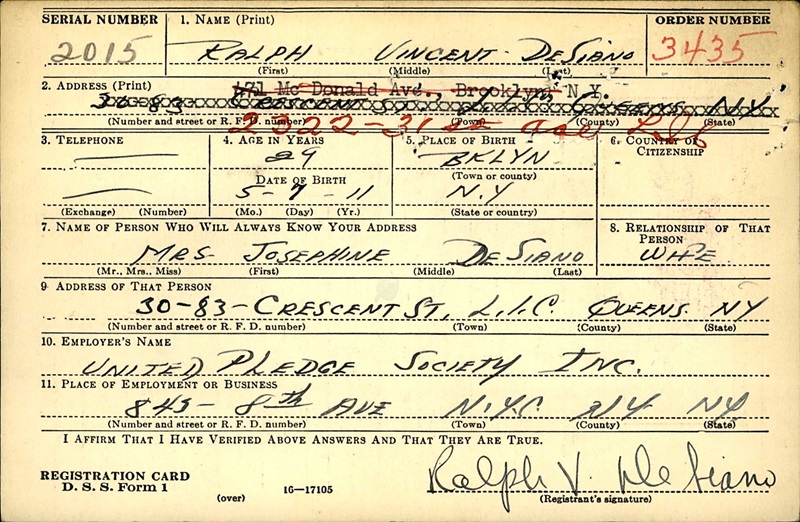 SERIAL NUMBER 1. NAME (Print) ORDER NUMBER
2015 RALPH VINCENT DESIANO 3435
(First) (Middle) (Last)
2. ADDRESS (Print) 171 McDonald Ave., Brooklyn, N.Y.
30-83 CRESCENT ST. L.I.C. QUEENS N.Y.
(Number and street or R. F. D. number) (Town) (County) (State)
2322-31 st ave
3. TELEPHONE 4. AGE IN YEARS 5. PLACE OF BIRTH 6. COUNTRY OF CITIZENSHIP
29 BKLYN
DATE OF BIRTH (Town or county)
5-7-11 N.Y
(Exchange) (Number) (Mo.) (Day) (Yr.) (State or country)
7. NAME OF PERSON WHO WILL ALWAYS KNOW YOUR ADDRESS 8. RELATIONSHIP OF THAT PERSON
MRS JOSEPHINE DE SIANO WIFE
(Mr., Mrs., Miss) (First) (Middle) (Last)
9 ADDRESS OF THAT PERSON
30-83-CRESCENT ST. L.I.C. QUEENS NY
(Number and street or R. F. D. number) (Town) (County) (State)
10. EMPLOYER'S NAME
UNITED PLEDGE SOCIETY INC.
11. PLACE OF EMPLOYMENT OR BUSINESS
845- 8th AVE N.Y.C NY NY
(Number and street or R. F. D. number) (Town) (County) (State)
I AFFIRM THAT I HAVE VERIFIED ABOVE ANSWERS AND THAT THEY ARE TRUE.
REGISTRATION CARD Ralph V. De Siano
D. S. S. Form 1 (over) 16-17105 (Registrant's signature)